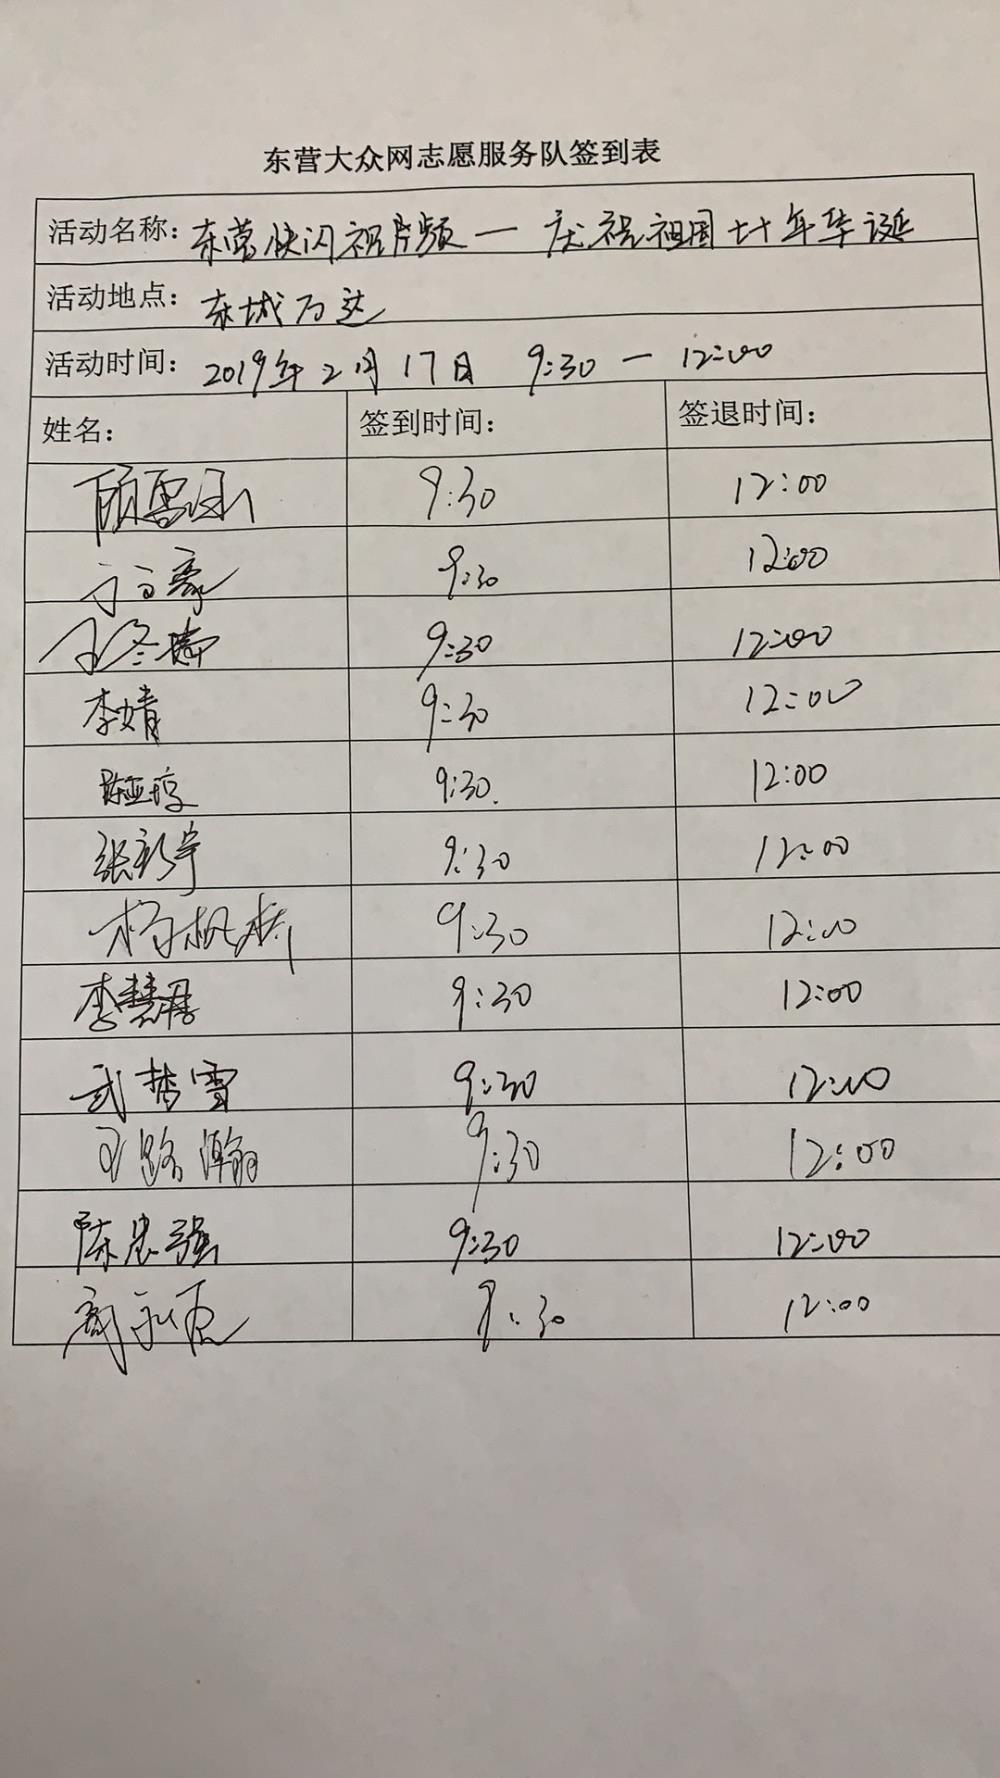 东营大众网志愿服务队签到表
活动名称: 东营快闪视频 一 庆祝祖国七十年华诞
活动地点: 东城万达
活动时间: 2019年2月17日 9:30 一 12:00
姓名: 签到时间: 签退时间:
9:30 12:00
9:30 12:00
9:30 12:00
李婧 9:30 12:00
9:30. 12:00
张彩宁 9:30 12:00
9:30 12:00
李慧君 9:30 12:00
武梦雪 9:30 12:00
王路瀚 9:30 12:00
陈忠强 9:30 12:00
9:30 12:00